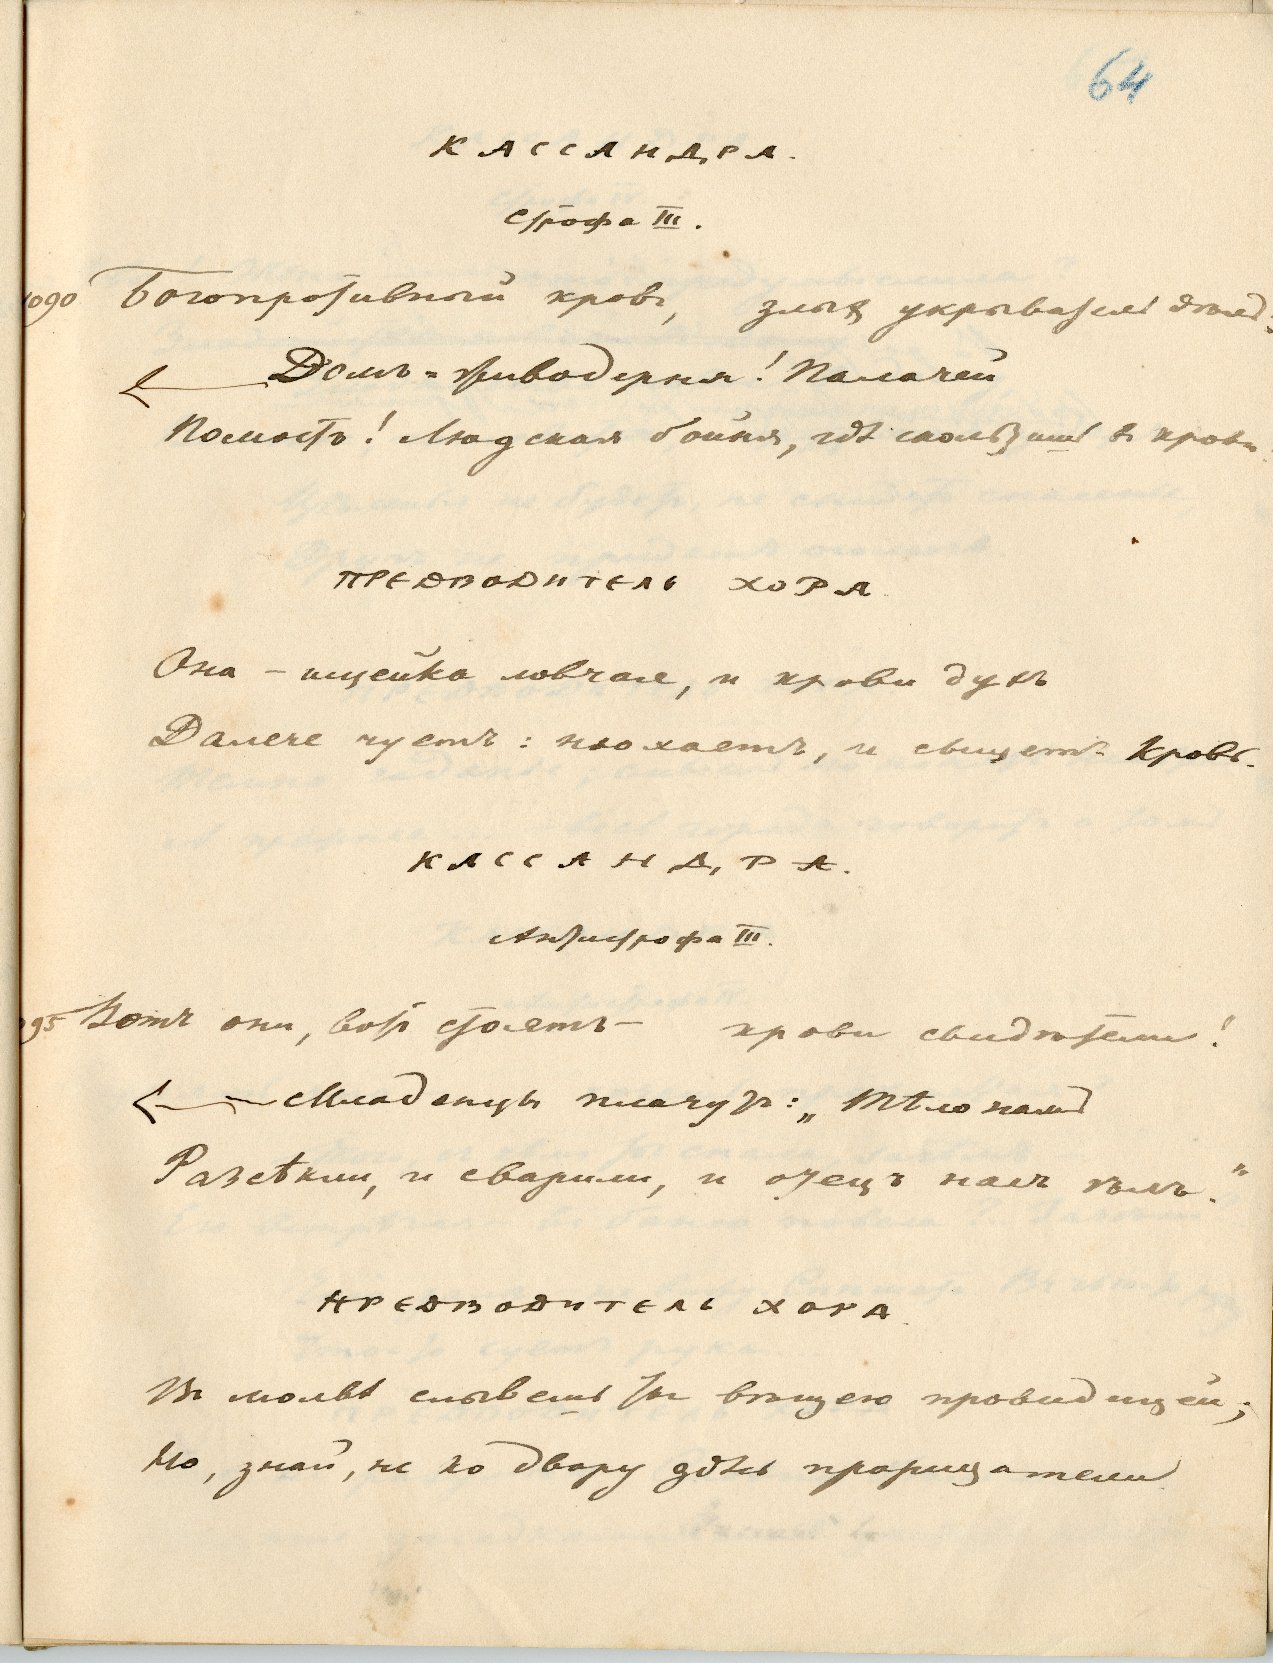 64
КАССАНДРА.
Строфа III.
1090 Богопротивный кровъ, злых укрыватель дѣлъ:
Домъ-живодерня! Палачей
Помостъ! Людская бойня, гдѣ скользишь в крови.
ПРЕДВОДИТЕЛЬ ХОРА
Она – ищейка ловчая, и крови духъ
Далече чуетъ: нюхаетъ, и сыщетъ кровь.
КАССАНДРА.
Антистрофа III.
95 Вотъ они, вотъ стоятъ – крови свидѣтели!
Младенцы плачутъ: „Тѣло намъ
Разсѣкли, и сварили, и отецъ насъ ѣлъ."
ПРЕДВОДИТЕЛЬ ХОРА
Въ молвѣ слывешь ты вѣщею провидицей;
Но, знай, не ко двору здѣсь прорицатели